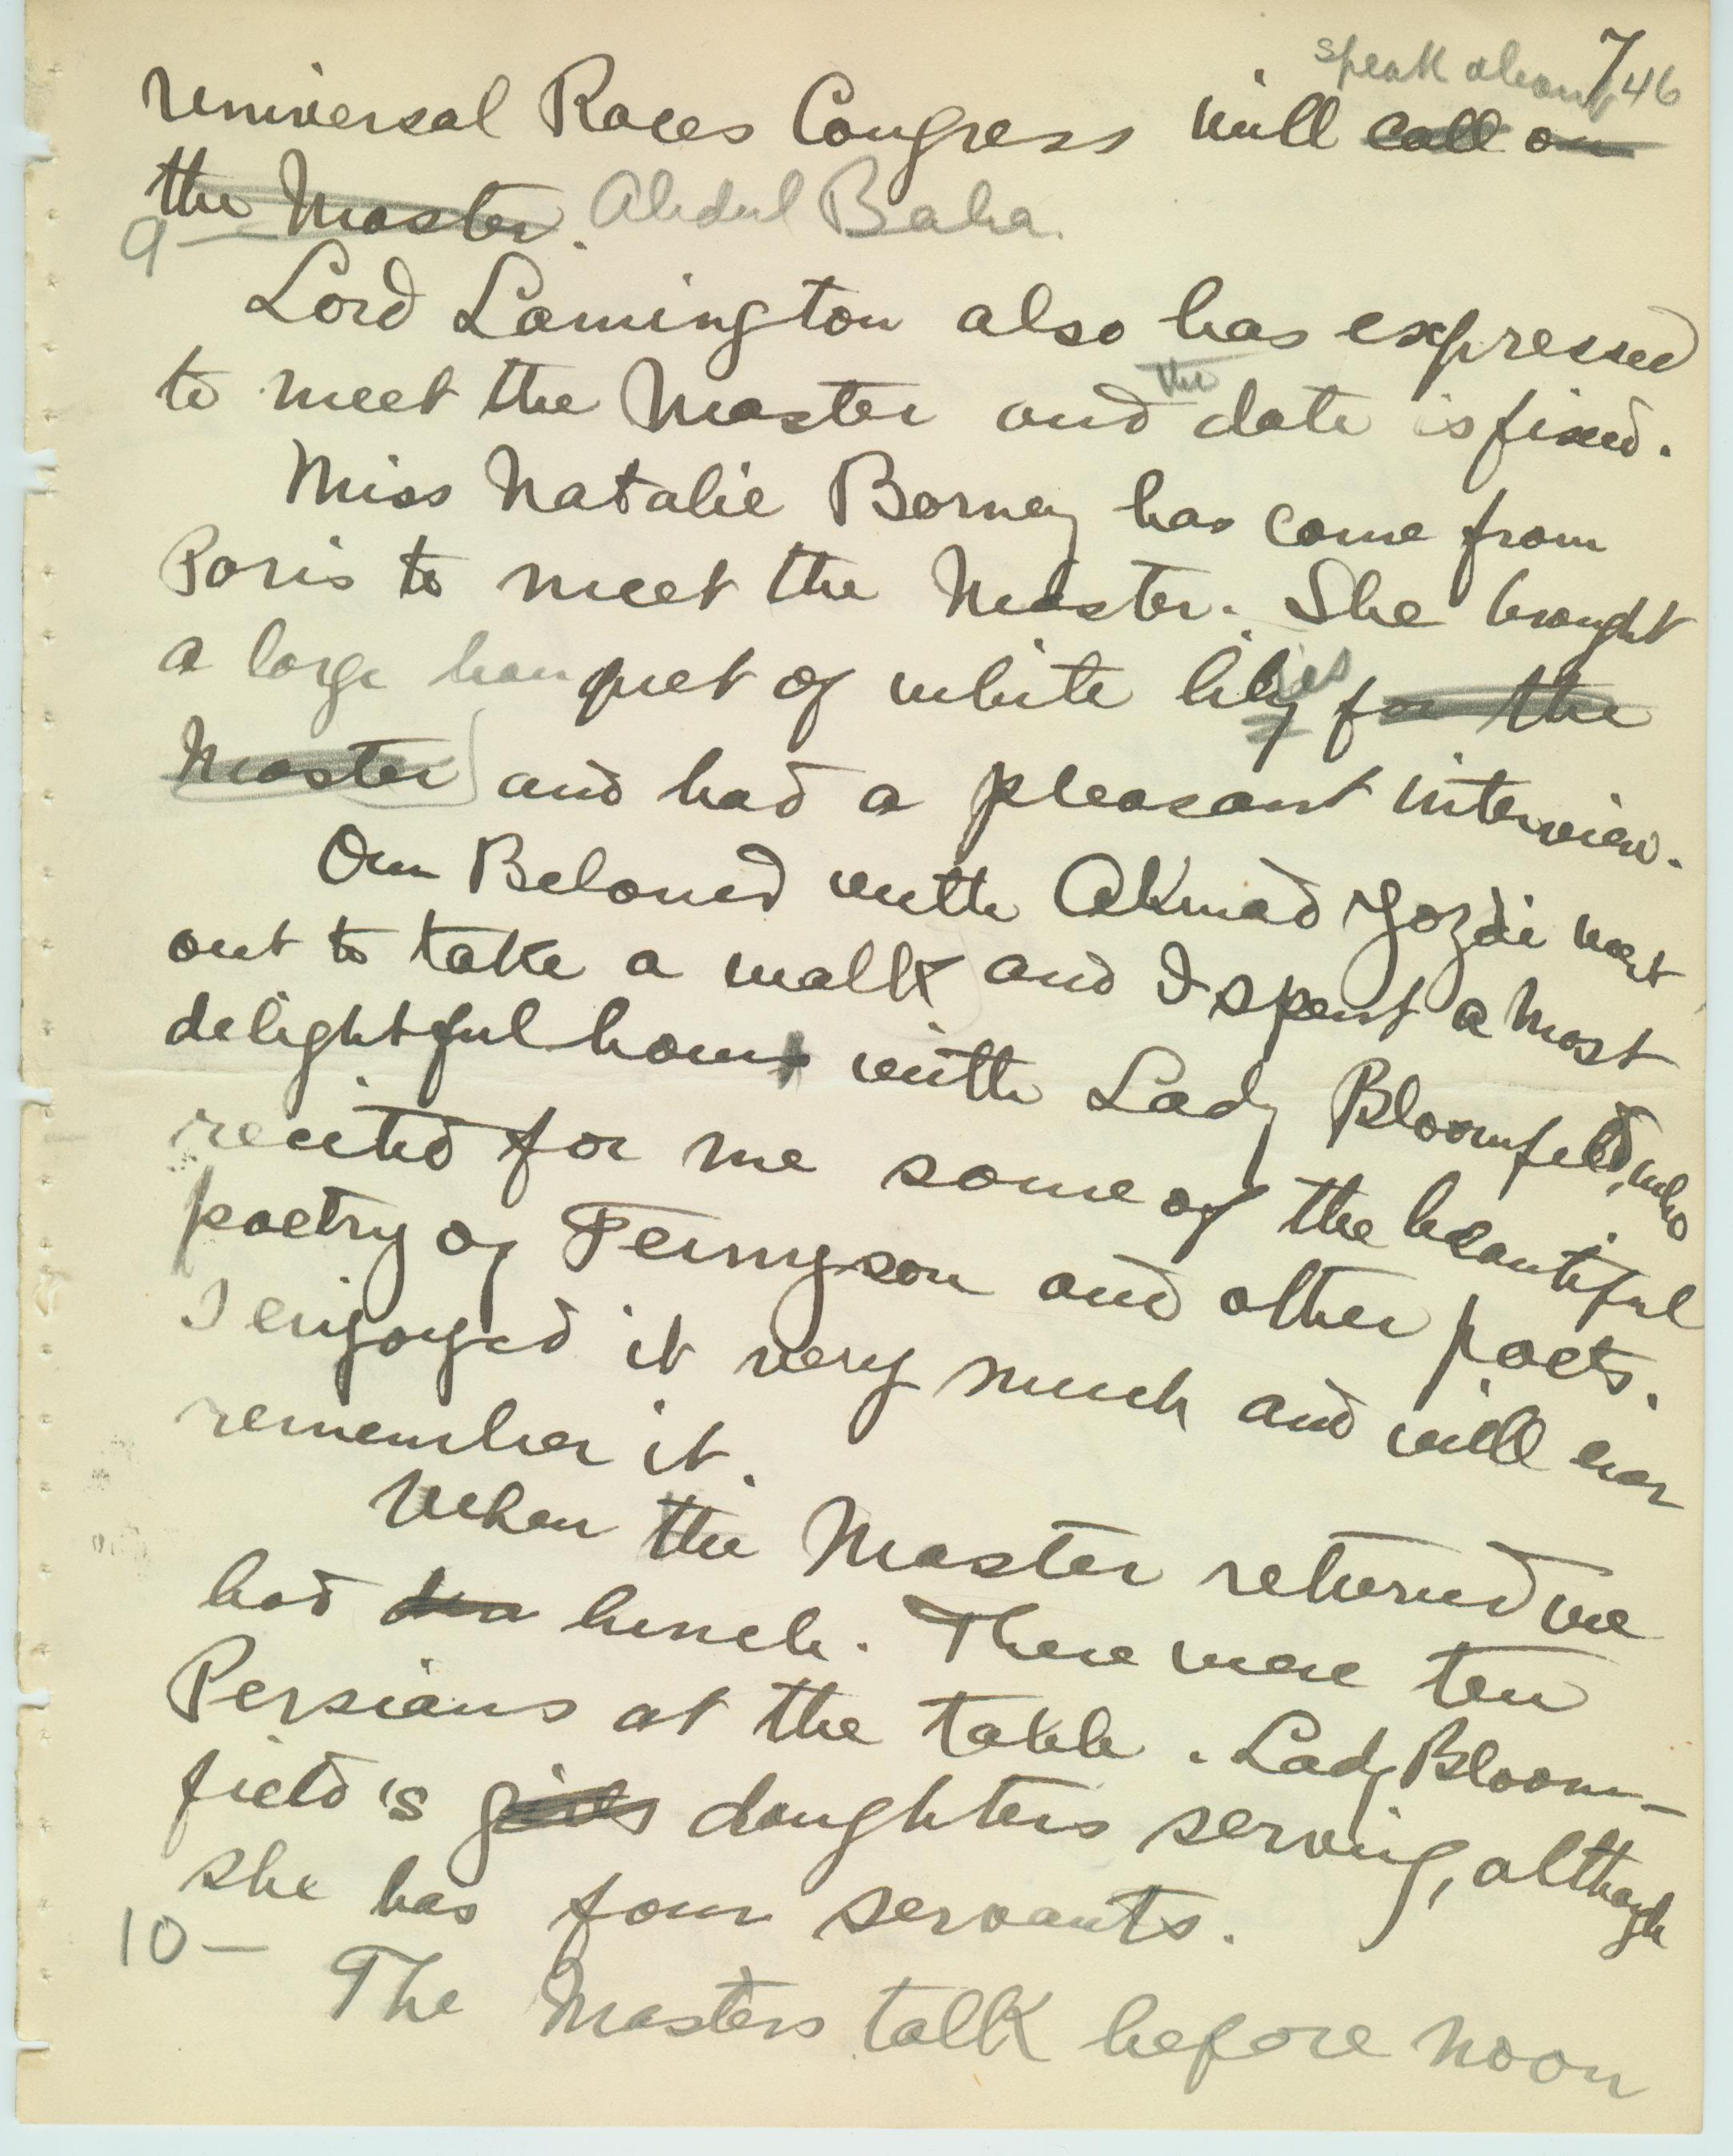 speak about 7 46
universal Races Congress will call on
the Master. Abdul Baha.
9 —
Lord Lamington also has expressed
to meet the Master and the date is fixed.
Miss Natalie Barney has come from
Paris to meet the Master. She brought
a large bouquet of white lilyies for the
Master and had a pleasant interview.
Our Beloved with Ahmad Yazdi went
out to take a walk and I spent a most
delightful hour with Lady Bloomfield, who
recited for me some of the beautiful
poetry of Tennyson and other poets.
I enjoyed it very much and will ever
remember it.
When the Master returned we
had lunch. There were ten
Persians at the table. Lady Bloom-
field's girls daughters serving, although
she has four servants.
10 —
The Masters talk before noon